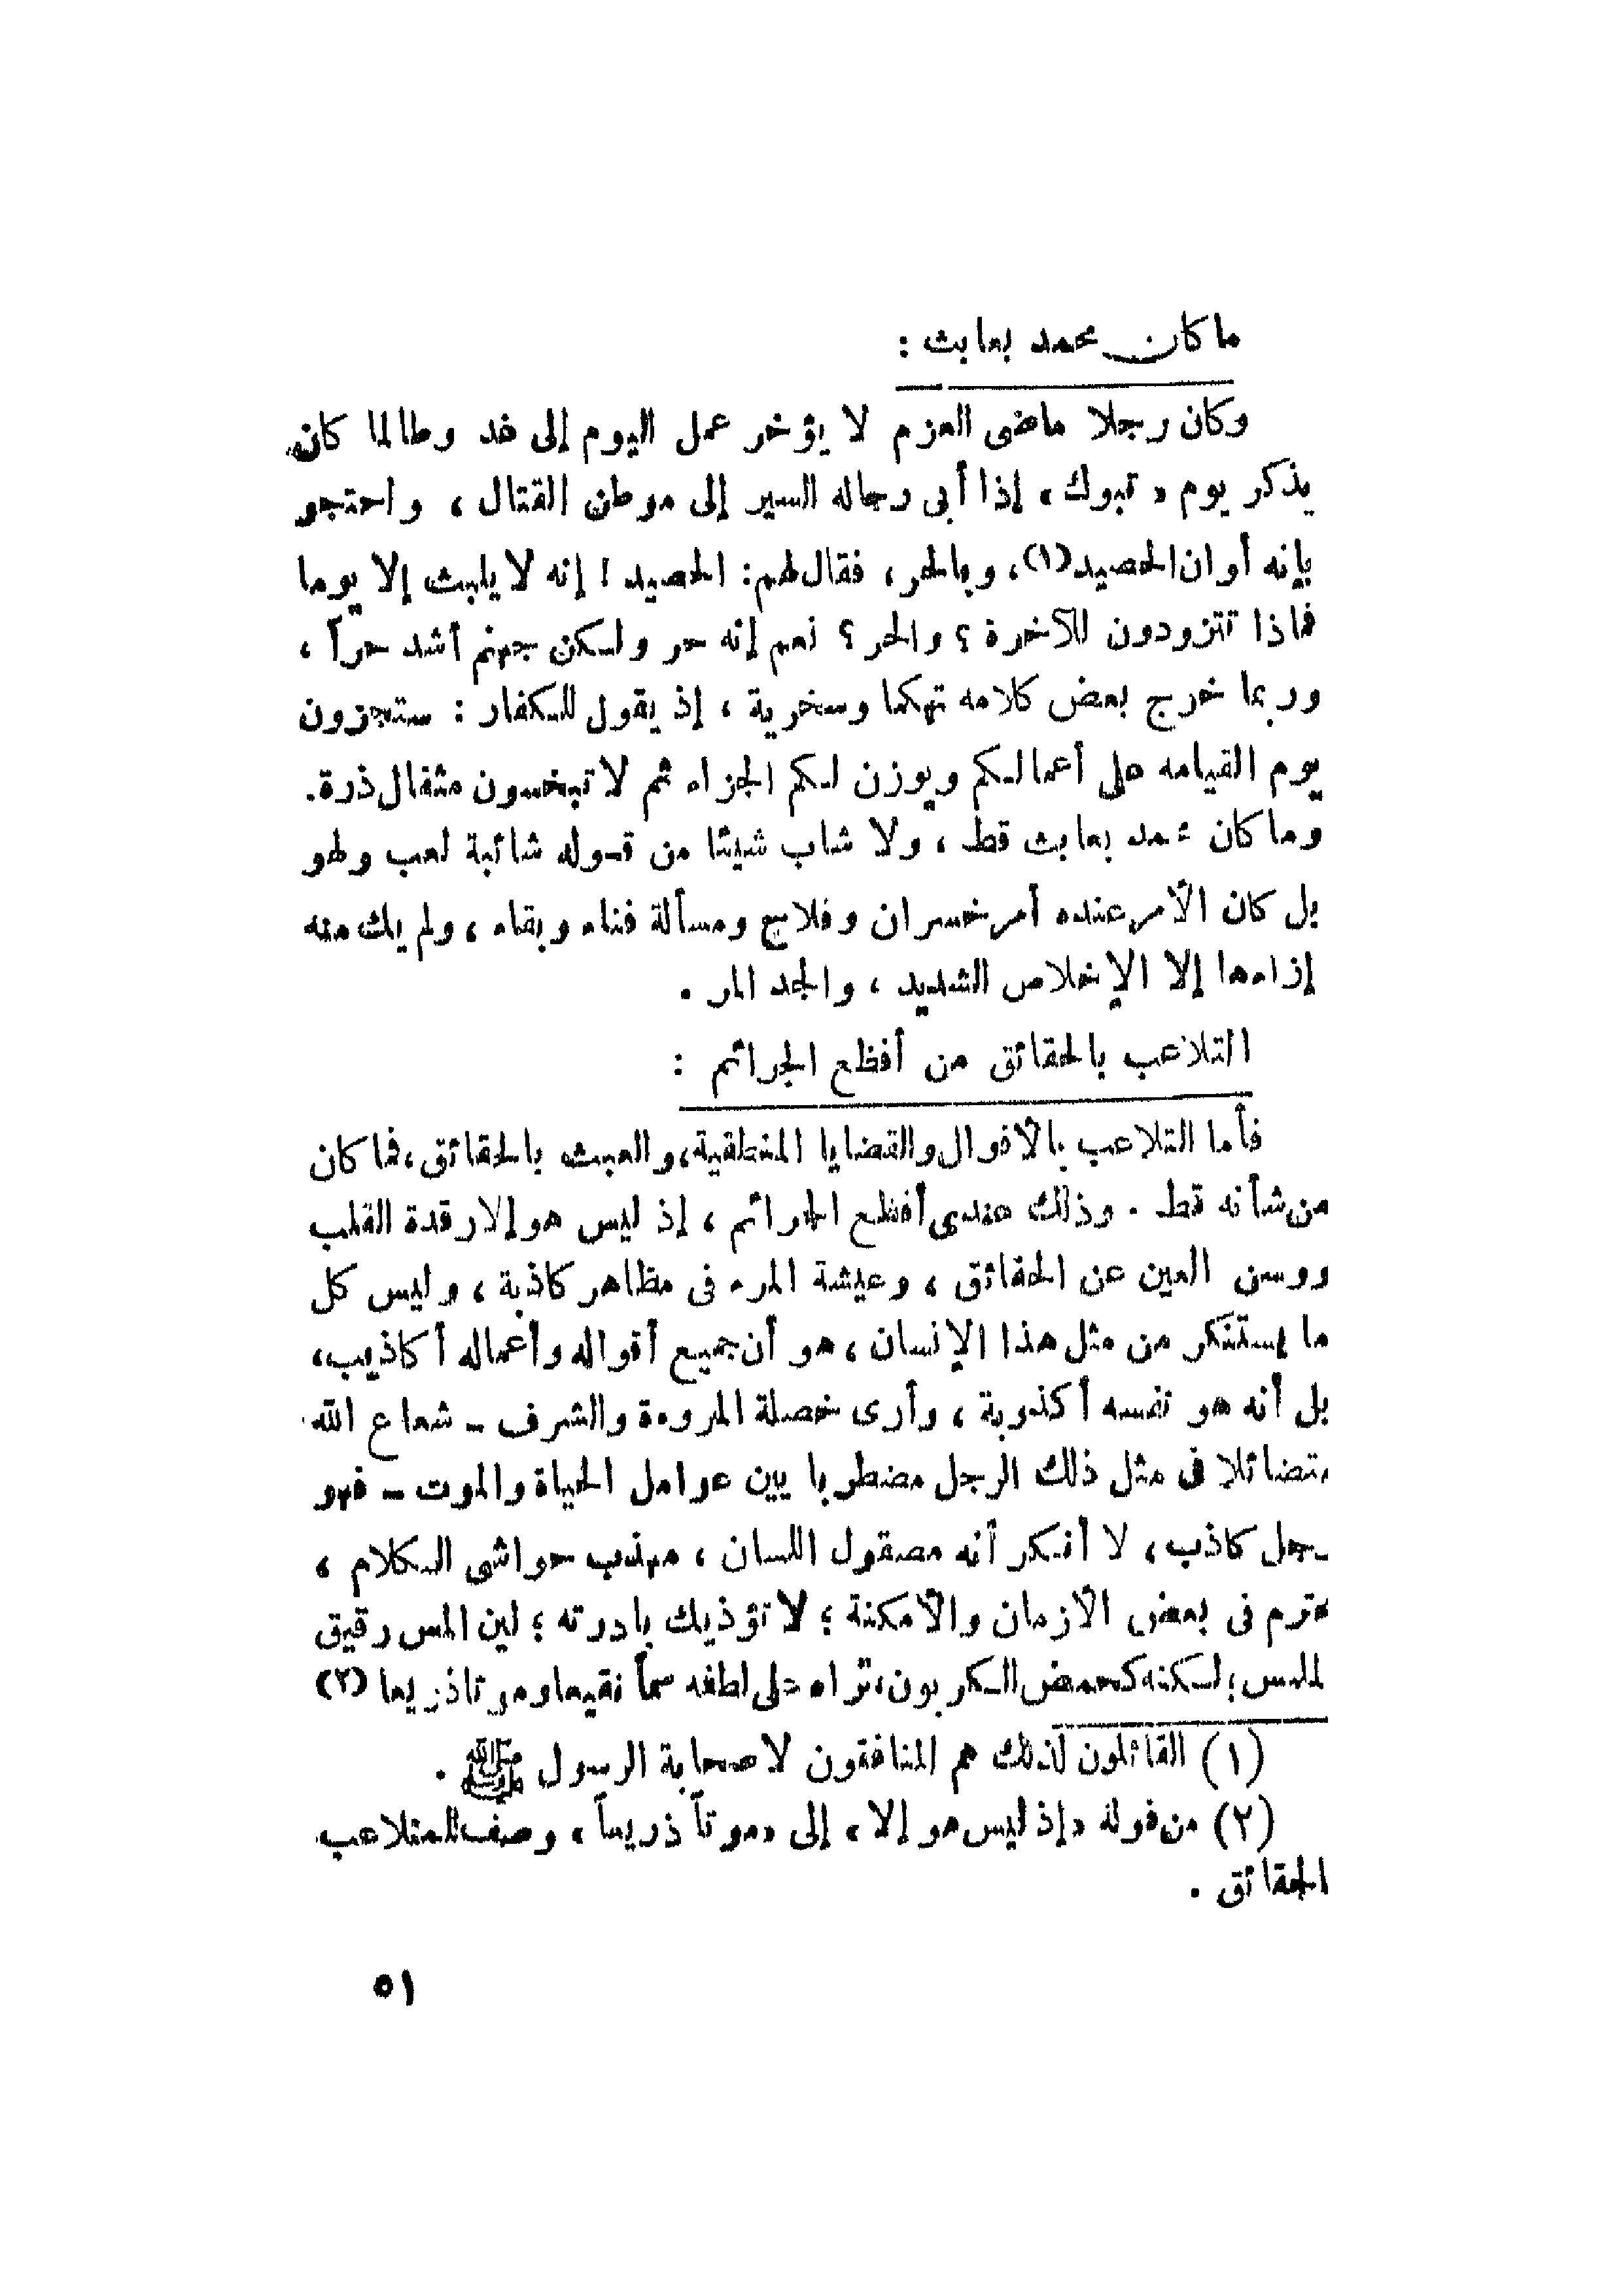 ما كان محمد بعابث :
وكان رجلا ماضى العزم لا يؤخر عمل اليوم إلى غد وطالما كان
يذكر يوم « تبوك » إذا أبى رجاله السير إلى موطن القتال ، واحتجو
بإنه أوان الحصيد(١)، وبالحر، فقال لهم: الحصيد ! إنه لا يلبث إلا يوما
فماذا تتزودون للآخرة ؟ والحر ؟ نعم إنه حر ولكن جهنم أشد حراً ،
وربما خرج بعض كلامه تهكما وسخرية ، إذ يقول للكفار : ستجزون
يوم القيامه على أعمالكم ويوزن لكم الجزاء ثم لا تبخسون مثقال ذرة.
وما كان محمد بعابث قط ، ولا شاب شيئا من قوله شائبة لعب ولهو
بل كان الأمر عنده أمر خسران وفلاح ومسألة فناء وبقاء ، ولم يك منه
إزاءها إلا الإخلاص الشديد ، والجد المر .
التلاعب بالحقائق من أفظع الجرائم :
فأما التلاعب بالأقوال والقضايا المنطقية، والعبث بالحقائق، فما كان
من شأنه قط . وذلك عندى أفظع الجرائم ، إذ ليس هو إلا رقدة القلب
ووسن العين عن الحقائق ، وعيشة المرء فى مظاهر كاذبة ، وليس كل
ما يستنكر من مثل هذا الإنسان ، هو أن جميع أقواله وأعماله أكاذيب،
بل أنه هو نفسه أكذوبة ، وأرى خصلة المروءة والشرف - شعاع الله
متضائلا فى مثل ذلك الرجل مضطربا بين عوامل الحياة والموت - فهو
رجل كاذب، لا أنكر أنه مصقول اللسان ، مهذب حواشى الكلام ،
محترم فى بعض الأزمان والأمكنة ؛ لا تؤذيك بادرته ؛ لين المس رقيق
الملمس؛ لكنه كحمض الكربون، تراه على لطفه سماً نقيعا وموتا ذريعا (٢)
(١) القائلون لذلك هم المنافقون لا صحابة الرسول ﷺ .
(٢) من قوله «إذ ليس هو إلا» إلى «موتاً ذريعاً» وصف للمتلاعب
الحقائق .
٥١